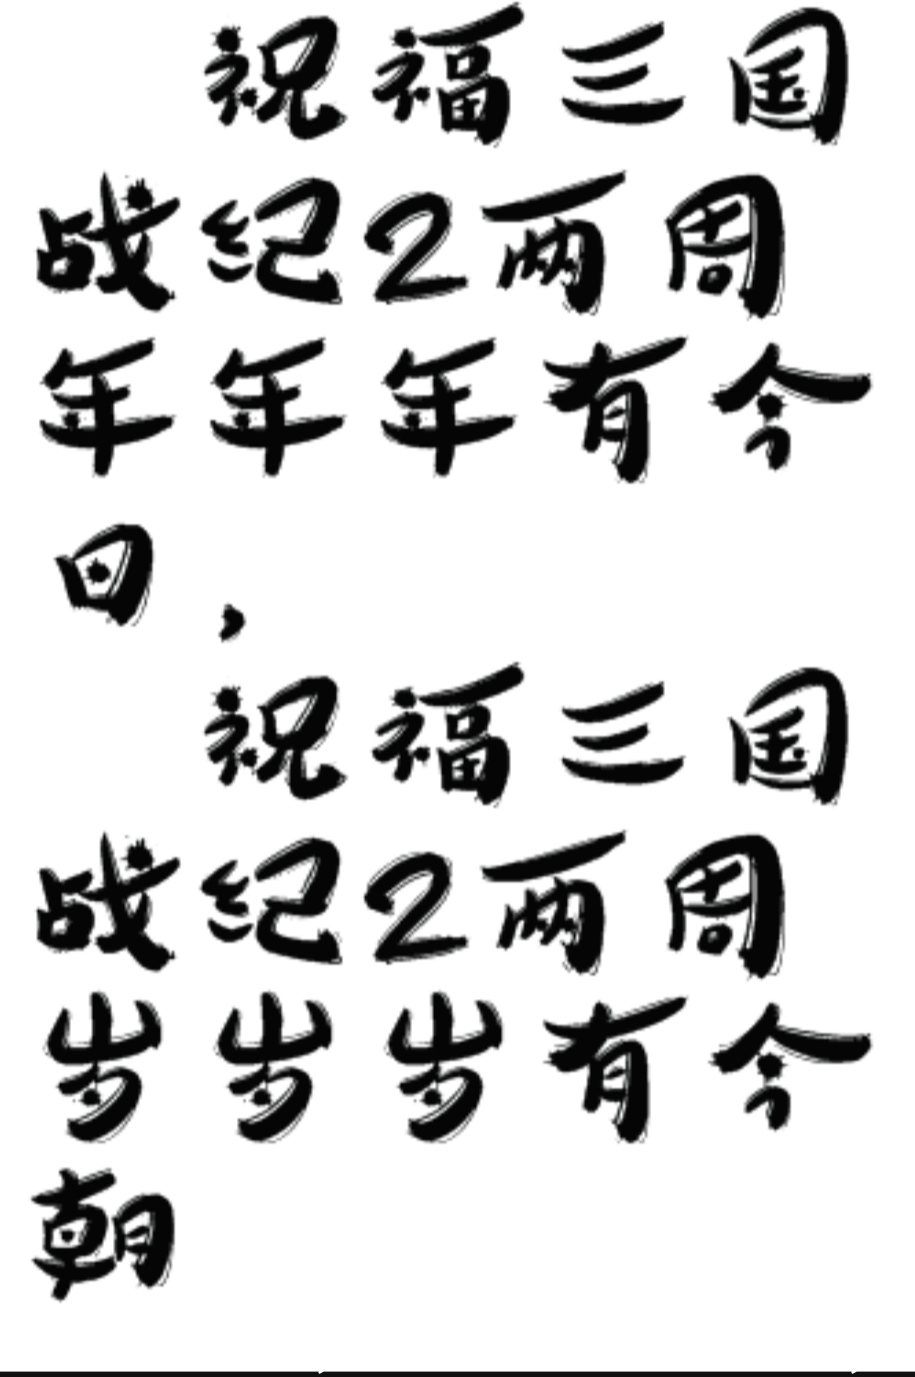 祝福三国
战纪2两周
年年年有今
日，
祝福三国
战纪2两周
岁岁岁有今
朝